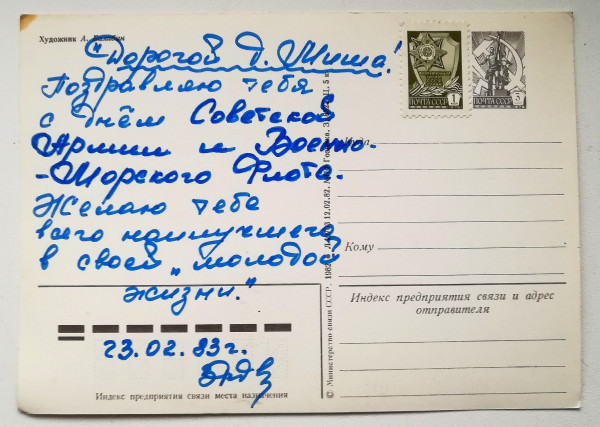 Художник А.
"Дорогой Д. Миша!
Поздравляю тебя
с днём Советской
Армии и Военно-
-Морского Флота.
Желаю тебе
всего наилучшего
в своей „молодой"
жизни."
23.02.83г.
ПОЧТА СССР 1
ПОЧТА СССР 5
Куда
Кому
Индекс предприятия связи и адрес
отправителя
Индекс предприятия связи места назначения
© Министерство связи СССР, 1982. 12.02.82. Ц. 5 к